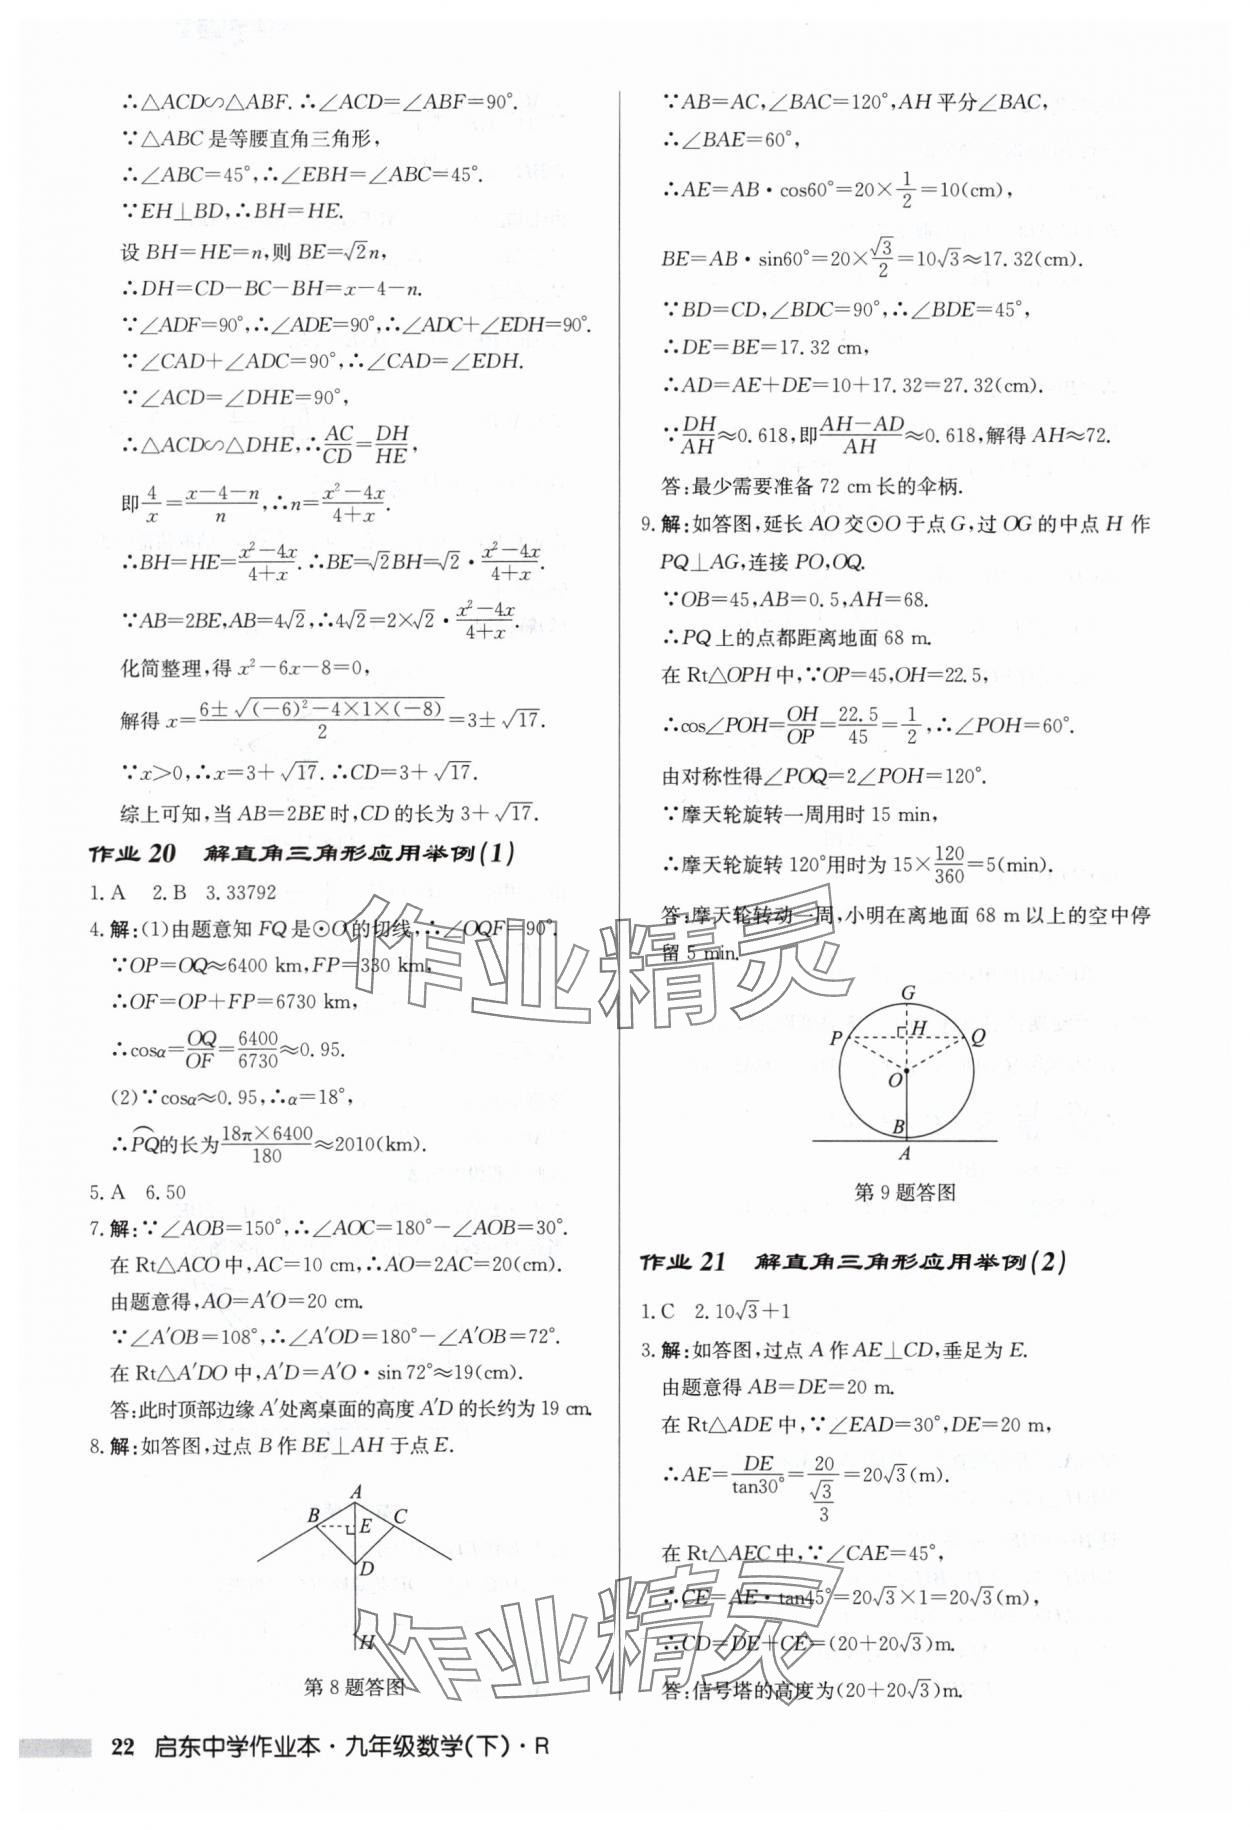 ∴△ACD∽△ABF.∴∠ACD=∠ABF=90°.
∵△ABC是等腰直角三角形,
∴∠ABC=45°,∴∠EBH=∠ABC=45°.
∵EH⊥BD,∴BH=HE.
设BH=HE=n,则BE=√2n,
∴DH=CD-BC-BH=x-4-n.
∵∠ADF=90°,∴∠ADE=90°,∴∠ADC+∠EDH=90°.
∵∠CAD+∠ADC=90°,∴∠CAD=∠EDH.
∵∠ACD=∠DHE=90°,
∴△ACD∽△DHE,∴AC/CD=DH/HE,
即4/x=(x-4-n)/n,∴n=(x²-4x)/(4+x).
∴BH=HE=(x²-4x)/(4+x).∴BE=√2BH=√2·(x²-4x)/(4+x).
∵AB=2BE,AB=4√2,∴4√2=2×√2·(x²-4x)/(4+x).
化简整理,得x²-6x-8=0,
解得x=(6±√((-6)²-4×1×(-8)))/2=3±√17.
∵x>0,∴x=3+√17.∴CD=3+√17.
综上可知,当AB=2BE时,CD的长为3+√17.
作业20 解直角三角形应用举例(1)
1.A 2.B 3.33792
4.解:(1)由题意知FQ是⊙O的切线,∴∠OQF=90°.
∵OP=OQ≈6400 km,FP=330 km,
∴OF=OP+FP=6730 km,
∴cosα=OQ/OF=6400/6730≈0.95.
(2)∵cosα≈0.95,∴α=18°,
∴⌒PQ的长为18π×6400/180≈2010(km).
5.A 6.50
7.解:∵∠AOB=150°,∴∠AOC=180°-∠AOB=30°.
在Rt△ACO中,AC=10 cm,∴AO=2AC=20(cm).
由题意得,AO=A′O=20 cm.
∵∠A′OB=108°,∴∠A′OD=180°-∠A′OB=72°.
在Rt△A′DO中,A′D=A′O·sin72°≈19(cm).
答:此时顶部边缘A′处离桌面的高度A′D的长约为19 cm.
8.解:如答图,过点B作BE⊥AH于点E.
A
B
E
C
D
H
第8题答图
∵AB=AC,∠BAC=120°,AH平分∠BAC,
∴∠BAE=60°,
∴AE=AB·cos60°=20×1/2=10(cm),
BE=AB·sin60°=20×√3/2=10√3≈17.32(cm).
∵BD=CD,∠BDC=90°,∴∠BDE=45°,
∴DE=BE=17.32 cm,
∴AD=AE+DE=10+17.32=27.32(cm).
∵DH/AH≈0.618,即(AH-AD)/AH≈0.618,解得AH≈72.
答:最少需要准备72 cm长的伞柄.
9.解:如答图,延长AO交⊙O于点G,过OG的中点H作
PQ⊥AG,连接PO,OQ.
∵OB=45,AB=0.5,AH=68.
∴PQ上的点都距离地面68 m.
在Rt△OPH中,∵OP=45,OH=22.5,
∴cos∠POH=OH/OP=22.5/45=1/2,∴∠POH=60°.
由对称性得∠POQ=2∠POH=120°.
∵摩天轮旋转一周用时15 min,
∴摩天轮旋转120°用时为15×120/360=5(min).
答:摩天轮转动一周,小明在离地面68 m以上的空中停
留5 min.
G
P
H
Q
O
B
A
第9题答图
作业21 解直角三角形应用举例(2)
1.C 2.10√3+1
3.解:如答图,过点A作AE⊥CD,垂足为E.
由题意得AB=DE=20 m.
在Rt△ADE中,∵∠EAD=30°,DE=20 m,
∴AE=DE/tan30°=20/(√3/3)=20√3(m).
在Rt△AEC中,∵∠CAE=45°,
∴CE=AE·tan45°=20√3×1=20√3(m),
∴CD=DE+CE=(20+20√3)m.
答:信号塔的高度为(20+20√3)m.
作业精灵
作业精灵
22 启东中学作业本·九年级数学(下)·R